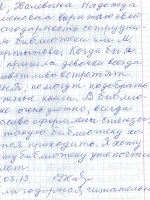 я, Халевина Надежда
меновна выражаю свою
лагодарность сотрудни
ям библиотеки.
Когда бы я
пришла девочки всегда
иветливо встретят
еня, помогут подобрать
жные книги. В библио
ке очень уютно, всегда
асиво оформлены стенды.
такую библиотеку хо
ся приходить. Я хожу
эту библиотеку уже
лет.
.05.13
лагодарная читатель